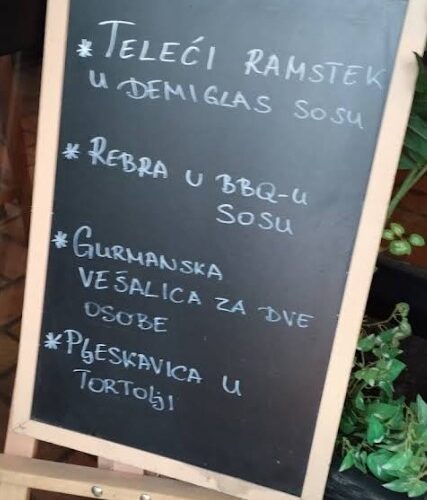 * TELEĆI RAMSTEK
U DEMIGLAS SOSU
* REBRA U BBQ-U
SOSU
* GURMANSKA
VEŠALICA ZA DVE
OSOBE
* PLJESKAVICA U
TORTOLJI